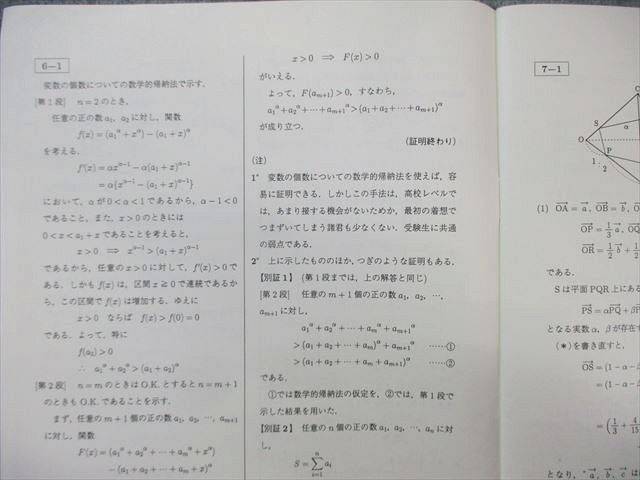 6－1
変数の個数についての数学的帰納法で示す.
[第1段] n＝2のとき,
任意の正の数a₁, a₂に対し, 関数
f(x)＝(a₁^α＋x^α)－(a₁＋x)^α
を考える.
f′(x)＝αx^(α－1)－α(a₁＋x)^(α－1)
＝α{x^(α－1)－(a₁＋x)^(α－1)}
において, αが0＜α＜1であるから, α－1＜0
であること, また, x＞0のときには
0＜x＜a₁＋xであることを考えると,
x＞0 ⟹ x^(α－1)＞(a₁＋x)^(α－1)
であるから, 任意のx＞0に対して, f′(x)＞0で
ある. しかもf(x)は, 区間x≧0で連続であるか
ら, この区間でf(x)は増加する. ゆえに
x＞0 ならば f(x)＞f(0)＝0
である. よって, 特に
f(a₂)＞0
∴ a₁^α＋a₂^α＞(a₁＋a₂)^α
[第2段] n＝mのときはO.K.とするとn＝m＋1
のときもO.K.であることを示す.
まず, 任意のm＋1個の正の数a₁, a₂, …, a_(m+1)
に対し, 関数
F(x)＝(a₁^α＋a₂^α＋…＋a_m^α＋x^α)
－(a₁＋a₂＋…＋a_m＋x)^α
x＞0 ⟹ F(x)＞0
がいえる.
よって, F(a_(m+1))＞0, すなわち,
a₁^α＋a₂^α＋…＋a_(m+1)^α＞(a₁＋a₂＋…＋a_(m+1))^α
が成り立つ.
(証明終わり)
(注)
1° 変数の個数についての数学的帰納法を使えば, 容
易に証明できる. しかしこの手法は, 高校レベルで
は, あまり接する機会がないためか, 最初の着想で
つまずいてしまう諸君も少なくない. 受験生に共通
の弱点である.
2° 上に示したもののほか, つぎのような証明もある.
【別証1】 (第1段までは, 上の解答と同じ)
[第2段] 任意のm＋1個の正の数a₁, a₂, …,
a_(m+1)に対し,
a₁^α＋a₂^α＋…＋a_m^α＋a_(m+1)^α
＞(a₁＋a₂＋…＋a_m)^α＋a_(m+1)^α ……①
＞(a₁＋a₂＋…＋a_m＋a_(m+1))^α ……②
である.
①では数学的帰納法の仮定を, ②では, 第1段で
示した結果を用いた.
【別証2】 任意のn個の正の数a₁, a₂, …, a_nに対
し,
S＝∑_(i=1)^n a_i
7－1
C
S
α
O
P
1:2
(1) OA→＝a→, OB→＝b→, O
OP→＝1/3 a→, OQ
OR→＝1/2 b→＋1
である.
Sは平面PQR上にある
PS→＝αPQ→＋βP
となる実数α, βが存在す
(＊)を書き直すと,
OS→＝(1－α－β
＝(1－α－
＝(1/3＋4/15
となり, a→, b→, c→は